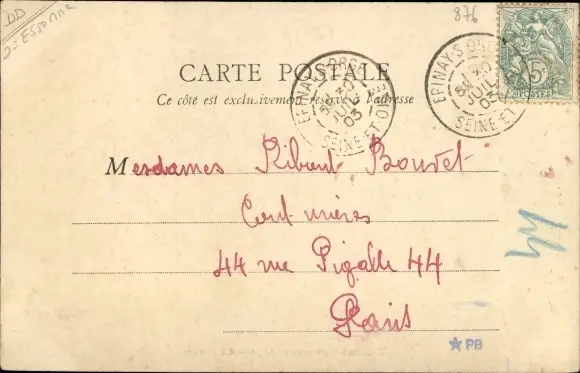 DD
D = ESSONNE
876
5c
POSTES
EPINAY-S-ORGE
JUIL
03
SEINE-ET-OISE
EPINAY-S-ORGE
JUIL
03
SEINE-ET
CARTE POSTALE
Ce côté est exclusivement réservé à l'adresse
Mesdames Ribout Bouvet
44 rue Pigalle 44
Paris
PB